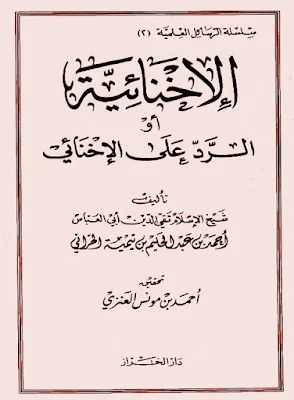 سِلسِلَة الرَّسَائِل العِلمِيَّة (٢)
الإِخْنَائِيَّة
أو
الرَّدِّ عَلَى الإِخْنَائِي
تأليف
شَيخ الإسْلَام تَقيّ الدّين أبي العَبَّاس
أحمَد بن عَبد الحَليم بن تيميَّة الحَرّاني
تحقيق
أحمَد بن مونس العَنزي
دَار الخَرَّاز